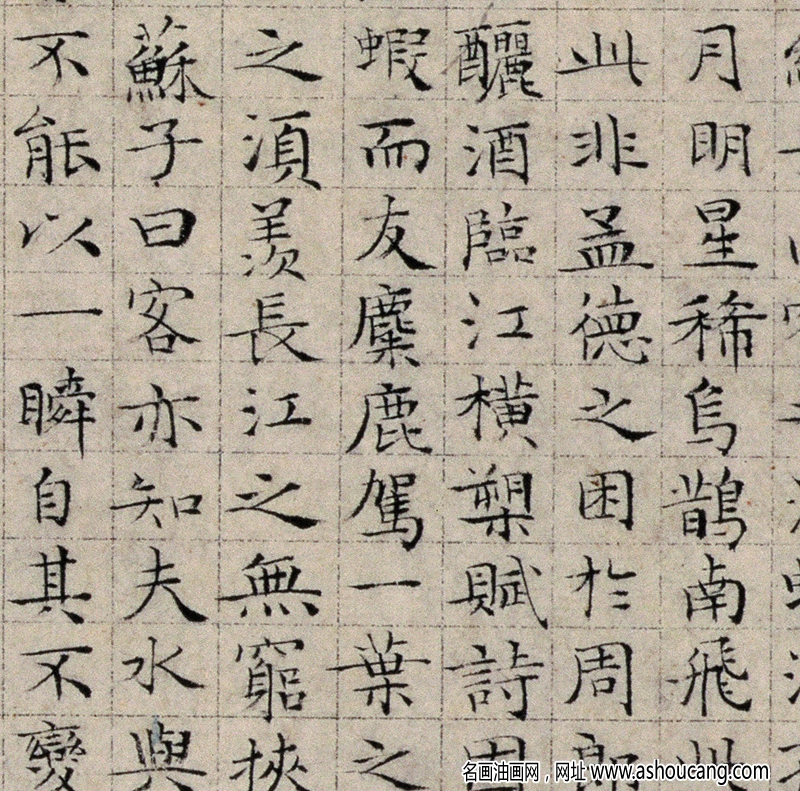 月明星稀烏鵲南飛此
此非孟德之困於周郎
釃酒臨江橫槊賦詩固
蝦而友麋鹿駕一葉之
之湏羨長江之無窮挾
蘇子曰客亦知夫水與
不能以一瞬自其不變
名画油画网，网址 www.ashoucang.com